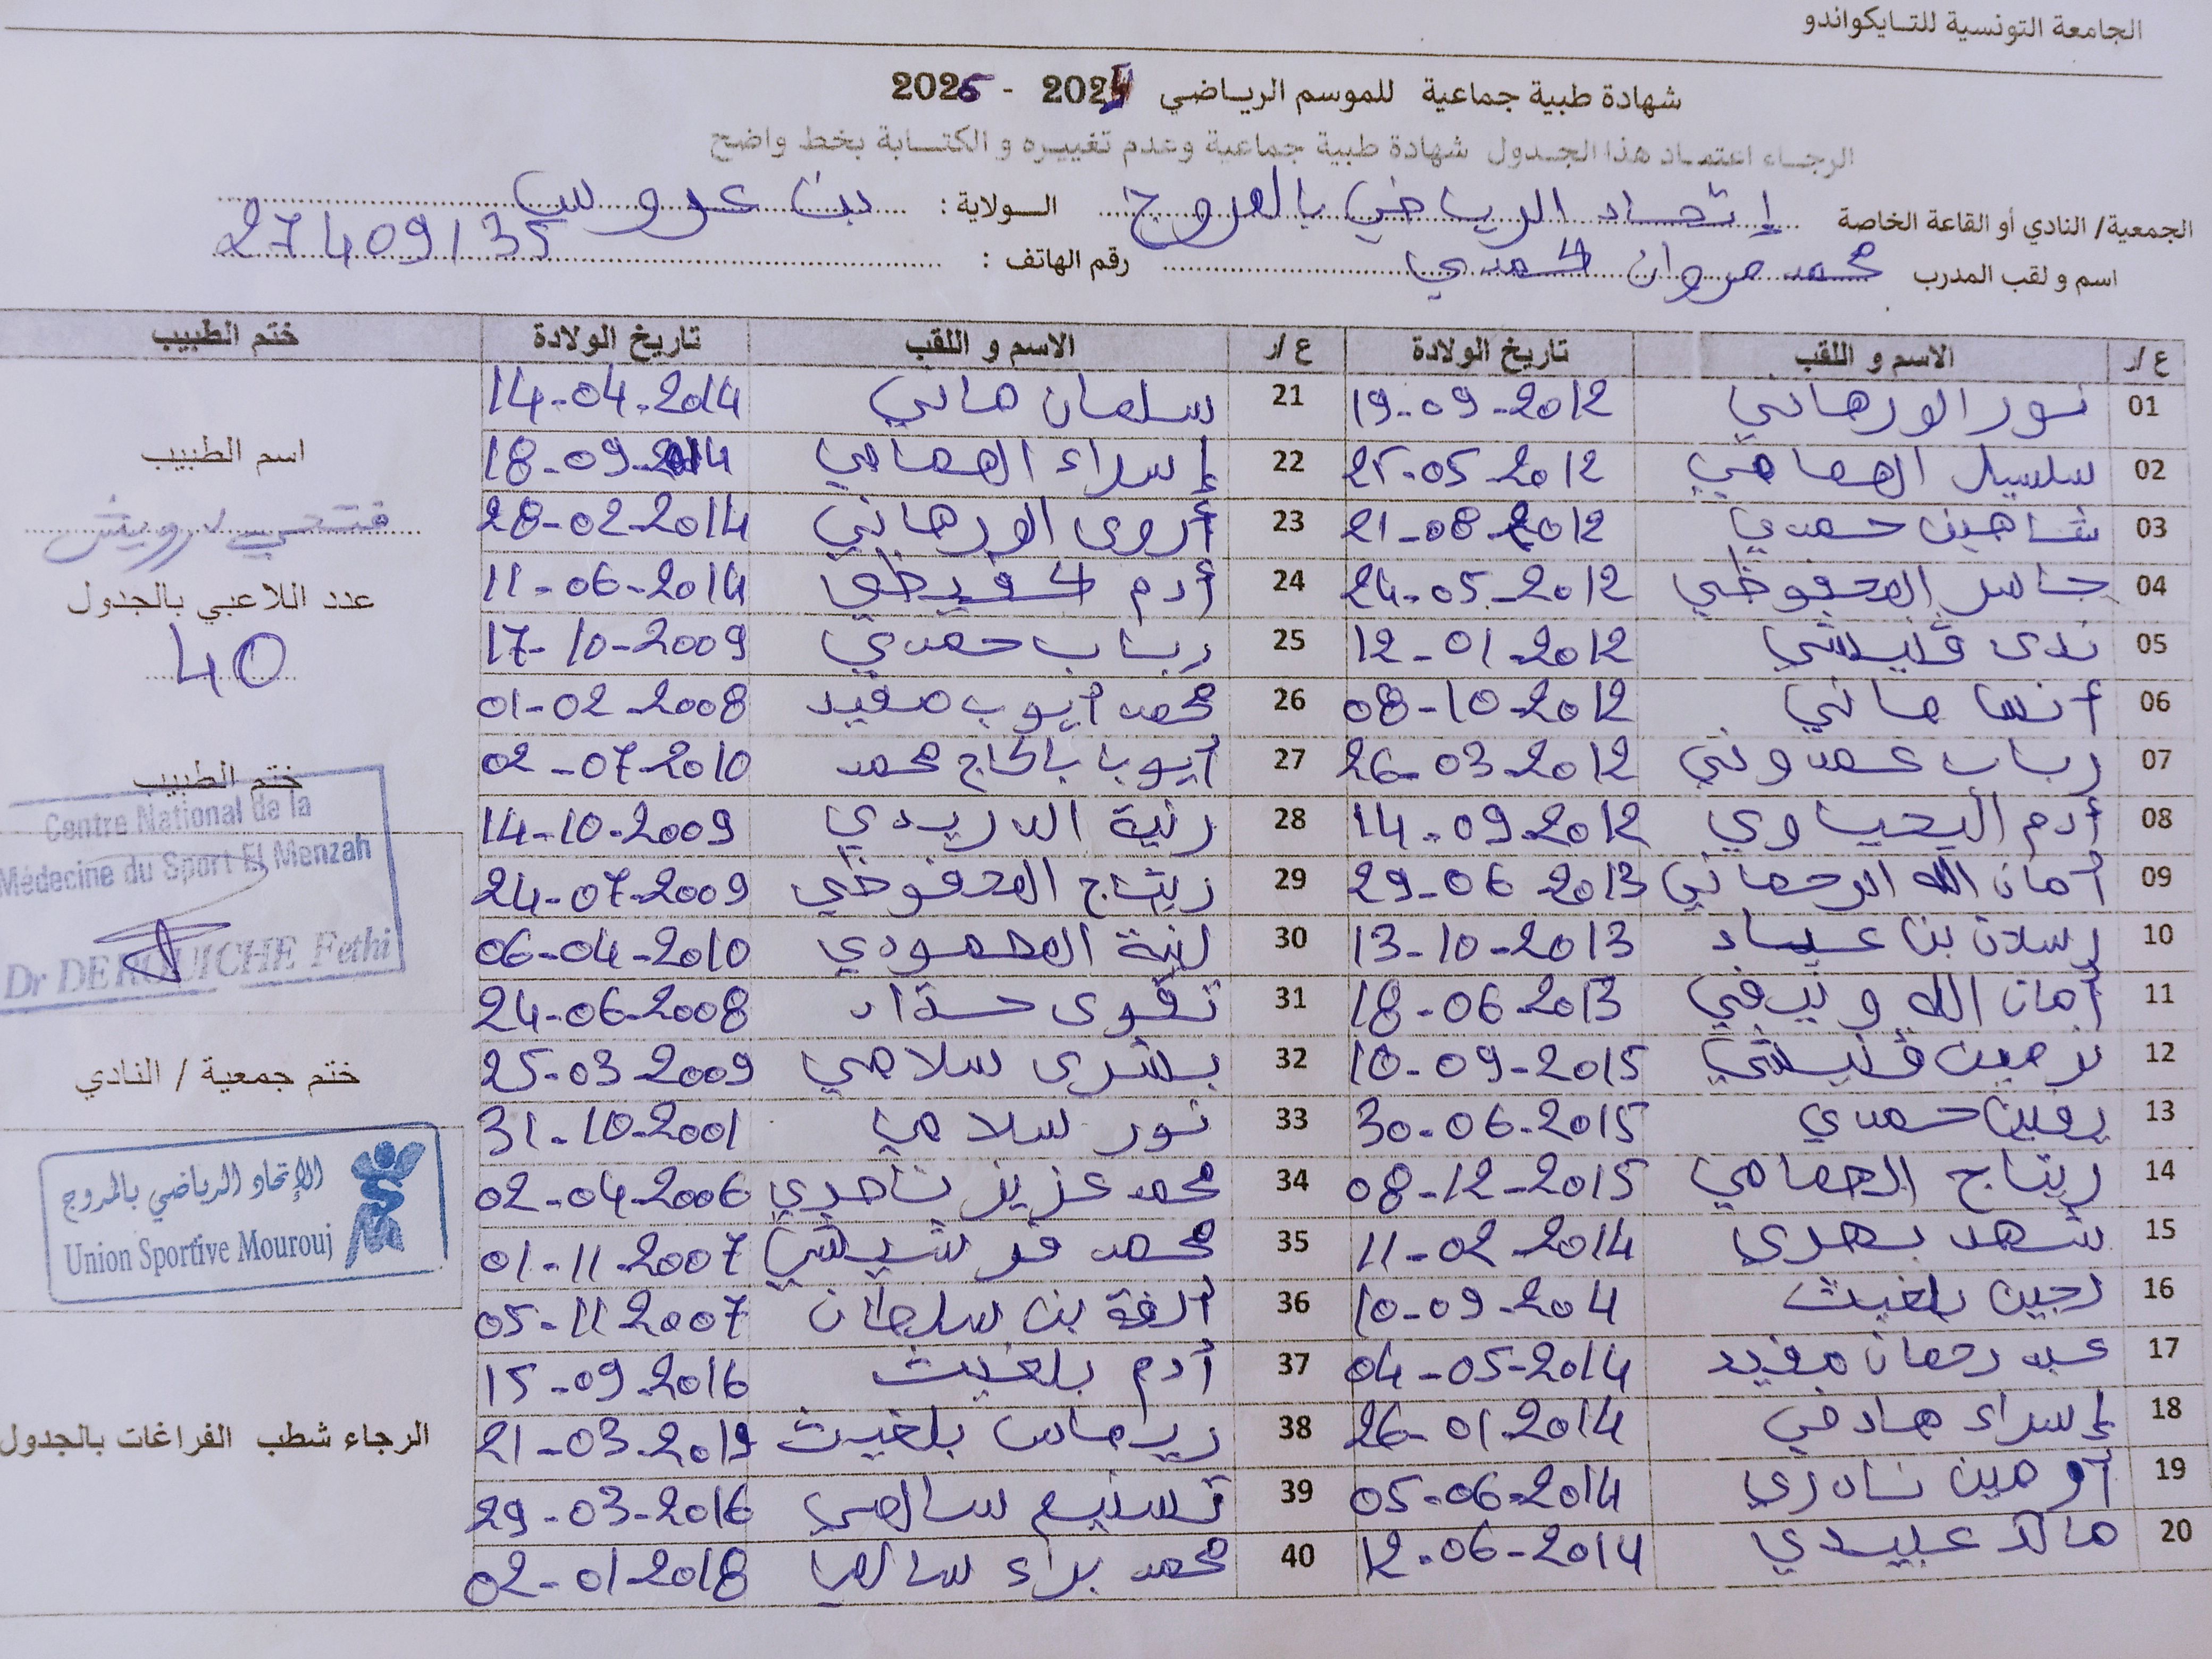 الجامعة التونسية للتايكواندو
شهادة طبية جماعية للموسم الرياضي 2024 - 2025
الرجاء اعتماد هذا الجدول شهادة طبية جماعية وعدم تغييره و الكتابة بخط واضح
الجمعية/ النادي أو القاعة الخاصة إتحاد الرياضي بالمروج الولاية : بن عروس
اسم و لقب المدرب محمد مروان حمدي رقم الهاتف : 27409135
ع/ر الاسم و اللقب تاريخ الولادة ع/ر الاسم و اللقب تاريخ الولادة ختم الطبيب
01 نور الورهاني 19-09-2012 21 سلمان هاني 14-04-2014
02 سلسبيل الهمامي 25-05-2012 22 إسراء الهمامي 18-09-2014
03 شاهين حمدي 21-08-2012 23 أروى الورهاني 28-02-2014
04 جاسر المحفوظي 24-05-2012 24 أدم حفيظي 11-06-2014
05 ندى 12-01-2012 25 رباب حمدي 17-10-2009
06 أنس هاني 08-10-2012 26 محمد أيوب مفيد 01-02-2008
07 رباب عمدوني 26-03-2012 27 أيوب بالحاج محمد 02-07-2010
08 أدم اليحياوي 14-09-2012 28 رنية الدريدي 14-10-2009
09 أمان الله الرحماني 29-06-2013 29 ريتاج المحفوظي 24-07-2009
10 رسلان بن عياد 13-10-2013 30 لنية المحمودي 06-04-2010
11 أمان الله 18-06-2013 31 تقوى حداد 24-06-2008
12 نرمين 10-09-2015 32 بشرى سلامي 25-03-2009
13 حمدي 30-06-2015 33 نور سلامي 31-10-2001
14 ريتاج الهمامي 08-12-2015 34 محمد عزيز 02-04-2006
15 شهد 11-02-2014 35 محمد 01-11-2007
16 لجين بلغيث 10-09-2014 36 ألفة بن سلطان 05-11-2007
17 عبد رحمان مفيد 04-05-2014 37 أدم بلغيث 15-09-2016
18 إسراء هادفي 26-01-2014 38 ريماس بلغيث 21-03-2019
19 نادري 05-06-2014 39 تسنيم سالمي 29-03-2016
20 مالك عبيدي 12-06-2014 40 محمد براء سالمي 02-01-2018
اسم الطبيب
فتحي درويش
عدد اللاعبي بالجدول
40
ختم الطبيب
Centre National de la
Médecine du Sport El Menzah
Dr DEROUICHE Fethi
ختم جمعية / النادي
الإتحاد الرياضي بالمروج
Union Sportive Mourouj
الرجاء شطب الفراغات بالجدول